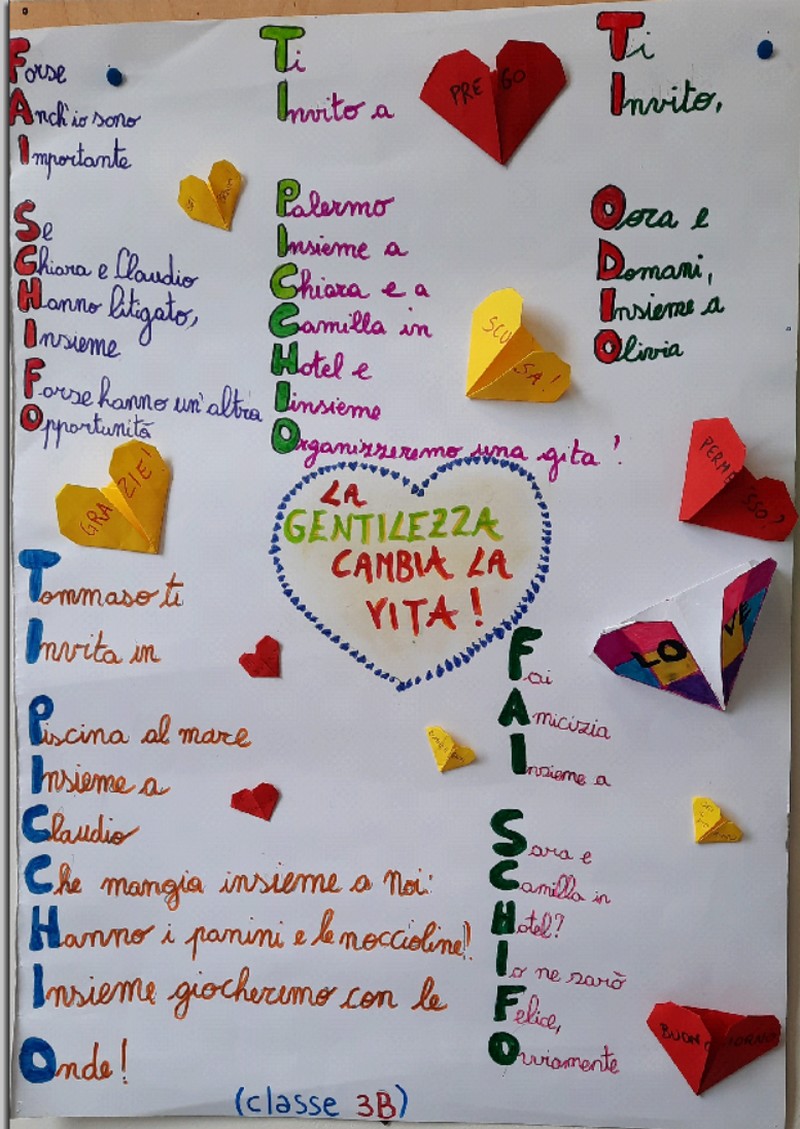 Forse
Anch'io sono
Importante
Se
Chiara e Claudio
Hanno litigato,
Insieme
Forse hanno un'altra
Opportunità
Ti
Invito a
Palermo
Insieme a
Chiara e a
Camilla in
Hotel e
Iinsieme
Organizzeremo una gita!
Ti
Invito,
Oora e
Domani,
Insieme a
Olivia
PREGO
SCUSA!
PERMESSO,
GRAZIE!
LA
GENTILEZZA
CAMBIA LA
VITA!
LOVE
Tommaso ti
Invita in
Piscina al mare
Insieme a
Claudio
Che mangia insieme a Noi:
Hanno i panini e le noccioline!
Insieme giocheremo con le
Onde!
Fai
Amicizia
Insieme a
Sara e
Camilla in
Hotel?
Io ne sarò
Felice,
Ovviamente
BUONGIORNO
(classe 3B)